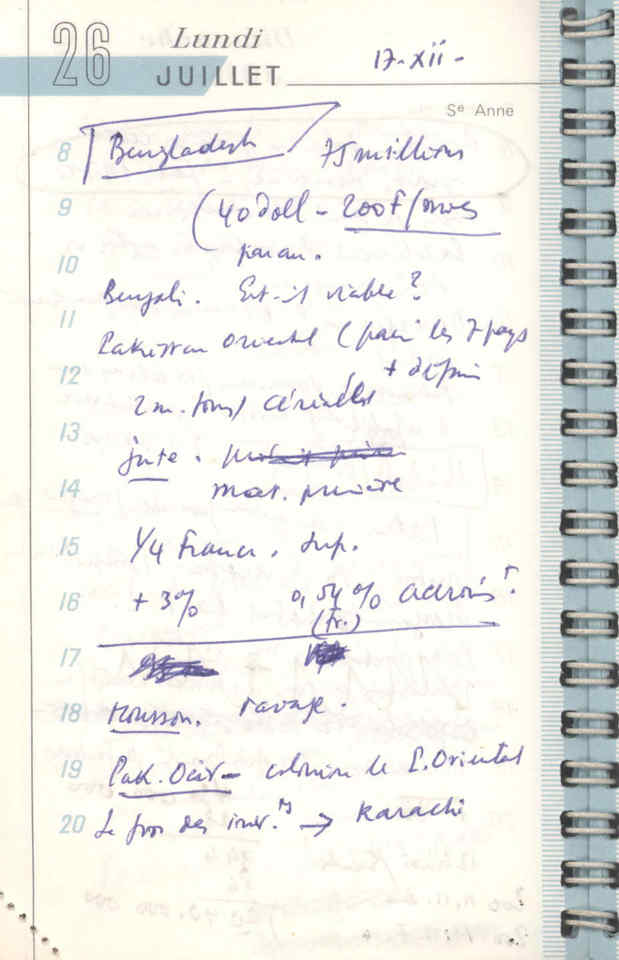 26 Lundi
JUILLET
17-XII-
Sᵉ Anne
8 Bengladesh 75 millions
9 (40 doll - 200 F/mois
10 par an.
Bengali. Est-il viable ?
11
Pakistan Oriental (parmi les 7 pays
12 + déficit
2 m. tonnes céréales
13
jute.
14 mat. première
15 1/4 France. sup.
16 + 3% 0,54% accrois^t.
(Fr.)
17
18 Mousson. ravage.
19 Pak. Occid - colonise le P. Oriental
20 Le gros des inv.^ts → Karachi